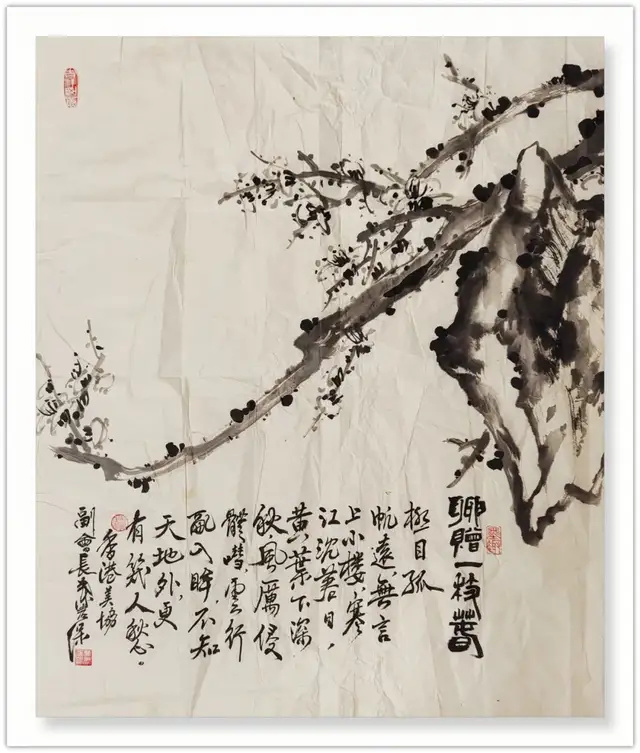 聊贈一枝春
極目孤
帆遠無言
上小樓寒
江沈落日，
黃葉下深
秋風厲侵
體雲行
亂入眸不知
天地外更
有幾人愁。
香港美協
副會長保